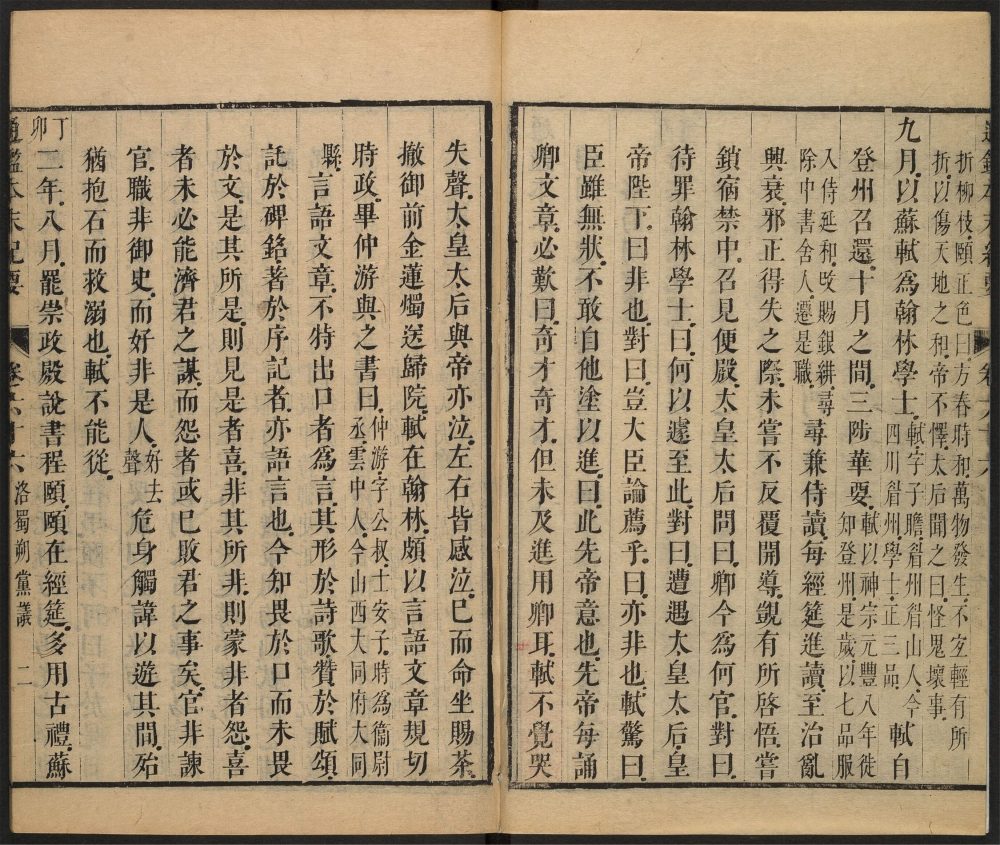 折柳枝頤正色曰方春時和萬物發生不宜輕有所
折以傷天地之和帝不懌太后聞之曰怪鬼壞事
九月以蘇軾爲翰林學士軾字子瞻眉州眉山人今四川眉州學士正三品軾自
登州召還十月之間三陟華要軾以神宗元豐八年徙知登州是歲以七品服
入侍延和攺賜銀緋尋除中書舍人遷是職尋兼侍讀每經筵進讀至治亂
興衰邪正得失之際未嘗不反覆開導覬有所啓悟嘗
鎖宿禁中召見便殿太皇太后問曰卿今爲何官對曰
待罪翰林學士曰何以遽至此對曰遭遇太皇太后皇
帝陛下曰非也對曰豈大臣論薦乎曰亦非也軾驚曰
臣雖無狀不敢自他塗以進曰此先帝意也先帝每誦
卿文章必歎曰奇才奇才但未及進用卿耳軾不覺哭
失聲太皇太后與帝亦泣左右皆感泣已而命坐賜茶
撤御前金蓮燭送歸院軾在翰林頗以言語文章規切
時政畢仲游與之書曰仲游字公叔士安子時爲衞尉丞雲中人今山西大同府大同
縣言語文章不特出口者爲言其形於詩歌贊於賦頌
託於碑銘著於序記者亦語言也今知畏於口而未畏
於文是其所是則見是者喜非其所非則蒙非者怨喜
者未必能濟君之謀而怨者或已敗君之事矣官非諫
官職非御史而好非是人好去聲危身觸諱以遊其間殆
猶抱石而救溺也軾不能從
丁卯二年八月罷崇政殿說書程頤頤在經筵多用古禮蘇
通鑑本末紀要 卷六十六 洛蜀朔黨議 二